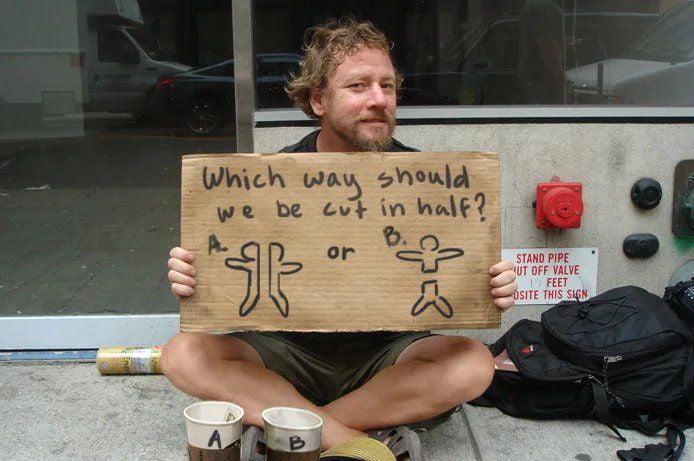 Which way should
we be cut in half?
A. or B.
STAND PIPE
UT OFF VALVE
FEET
OSITE THIS SIGN
A B